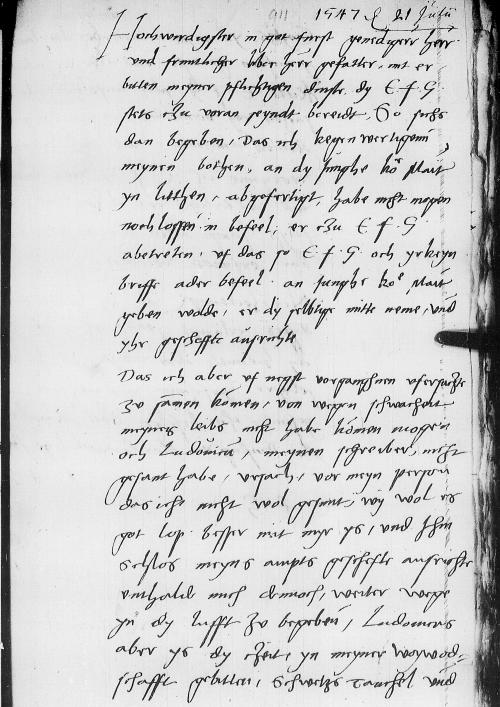 1547 d 21 Julii
Hochwirdigster in got furst genedigerr herr
und fruntlicher liber herr gefatter, mit er
bitten meyner pflichtigen dinste, dy E f G
stets czu voran seyndt bereidt, So sichs
dan begeben, Das ich kegenwertigenn
meynen bothen, an dy Junghe ko Mait
yn litthen, abgefertigt, habe nicht mogen
noch lossen in befeel, er czu E f G
abetreten, uf das so E f G och yrkeyn
briffe ader befeel an Junghe ko Mait
geben wolde, er dy selbtige mitte neme, und
yhr geschaffte ausrichte
Das ich aber uf negst vorganghnen
zu samen komen, von wegen schwacheit
meynes leibs nicht habe komen mogen
och Ludovicum, meynen schreiber, nicht
gesant habe, ursach, vor meyn person
das icht nicht wol gesunt, wy wol es
got lop besser mit myr ys, und Ihm
Schlos meyns ampts geschefte ausrichte
enthald mich dennoch, weiter wege
yn dy lufft zu begeben, Ludovicus
aber ys dy czeit, yn meyner woywod-
schafft gebitten, Schwetzs Tauchel und